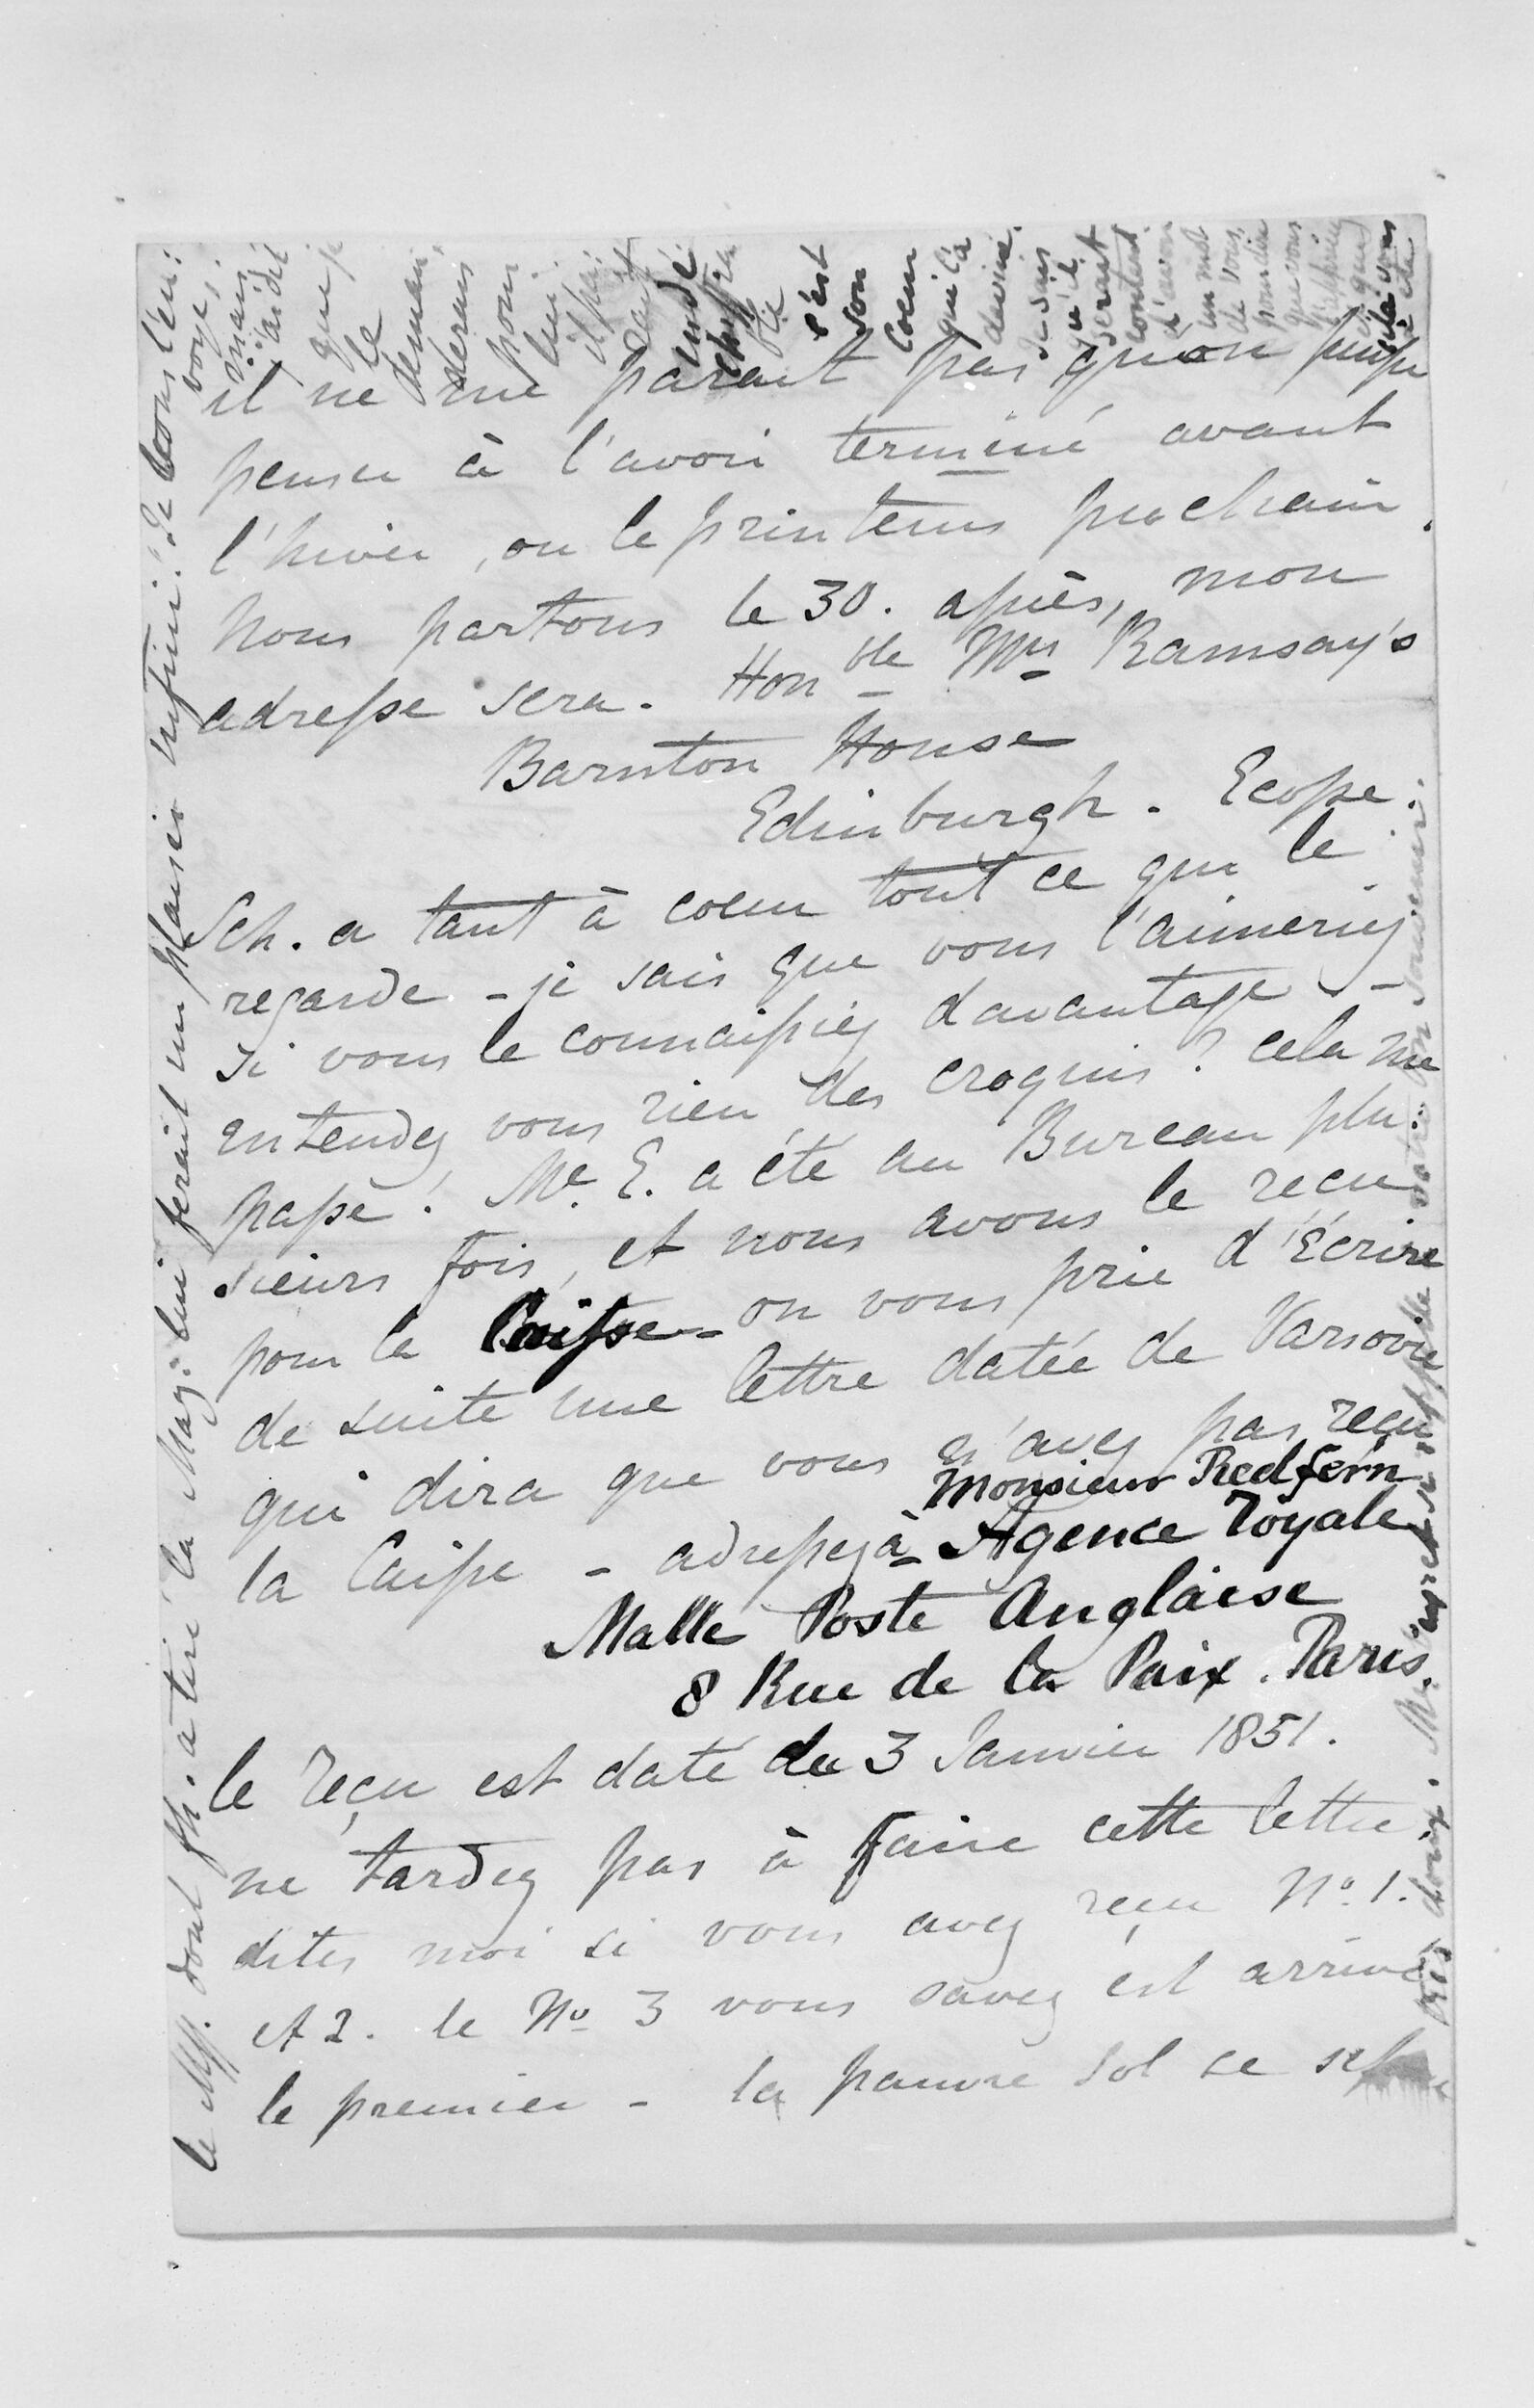 il ne me parait pas qu'on puisse
penser à l'avoir terminé avant
l'hiver, ou le printems prochain.
Nous partons le 30. après, mon
adresse sera. Honble Mrs Ramsay's
Barnton House
Edinburgh. Ecosse.
Sch. a tant à coeur tout ce qui le
regarde - je sais que vous l'aimeriez
si vous le connaissiez davantage -
entendez vous rien des croquis? cela me
passe! Me. E. a été au Bureau plu:
sieurs fois, et nous avons le recu
pour la Caisse - on vous prie d'Écrire
de suite une lettre datée de Varsovie
qui dira que vous n'avez pas reçu
la Caisse - adressez à Monsieur Redfern
Agence Royale
Malle Poste Anglaise
8 Rue de la Paix. Paris.
le reçu est daté du 3 Janvier 1851.
ne tardez pas à faire cette lettre.
dites moi si vous avez reçu No. 1.
et 2. le No 3 vous savez est arrivé
le premier - la pauvre Sol se
le MSS. dont Sch. a tiré la Maz: lui ferait un plaisir infini. Je
voye,
mais
j'ai dit
que je
le
deman:
derais
pour
lui.
c'est
son
coeur
qui l'a
deviné.
Je sais
qu'il
serait
content
d'avoir
un mot
de vous,
pour lui
que vous
cela vous
votre bon souvenir.